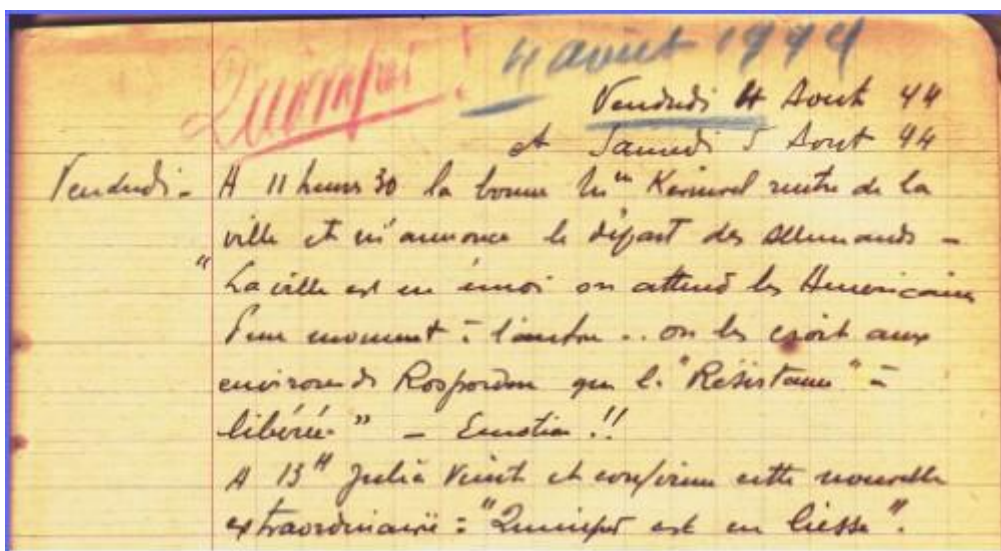 Quimper! 4 août 1944
Vendredi 4 Aout 44
et Samedi 5 Aout 44
Vendredi - A 11 heures 30 la bonne Mme Kerinvel rentre de la
ville et m'annonce le départ des Allemands -
"La ville est en émoi on attend les Américains
d'un moment à l'autre .. on les croit aux
environs de Rosporden que la "Résistance" a
libérée" - Emotion !!
A 13H Julia vient et confirme cette nouvelle
extraordinaire : "Quimper est en liesse".